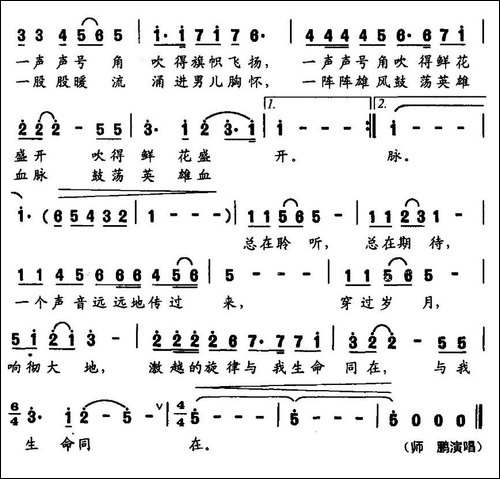 3 3 4 5 6 5 | i· i 7 i 7 6· | 4 4 4 4 3 4 6 7 i 7 6 |
一声声号角 吹得旗帜飞扬, 一声声号角吹得鲜花
一股股暖流 涌进男儿胸怀, 一阵阵雄风鼓荡英雄
2 2 2 - 5 5 | 3· i 2 3· i | 1. i - - - :| 2. i - - - |
盛开 吹得鲜花盛 开。 脉。
血脉 鼓荡英雄血
i· (6 5 4 3 2 | 1 - - -) | 1 1 5 6 5 - | 1 1 2 3 1 - |
总在聆听, 总在期待,
1 1 4 5 6 6 6 4 5 6 | 5 - - - | 1 1 5 6 5 - |
一个声音远远地传过 来, 穿过岁月,
5 i 2 i 3 - | 2 2 2 2 2 6 7· 7 7 i | 3 2 2 - 5 5 |
响彻大地, 激越的旋律与我生命 同在, 与我
6/4 3· i 2 - 5 - ∨ | 4/4 5 - - - | 5 - - - | 5 0 0 0 ‖
生命同 在。 (师 鹏演唱)